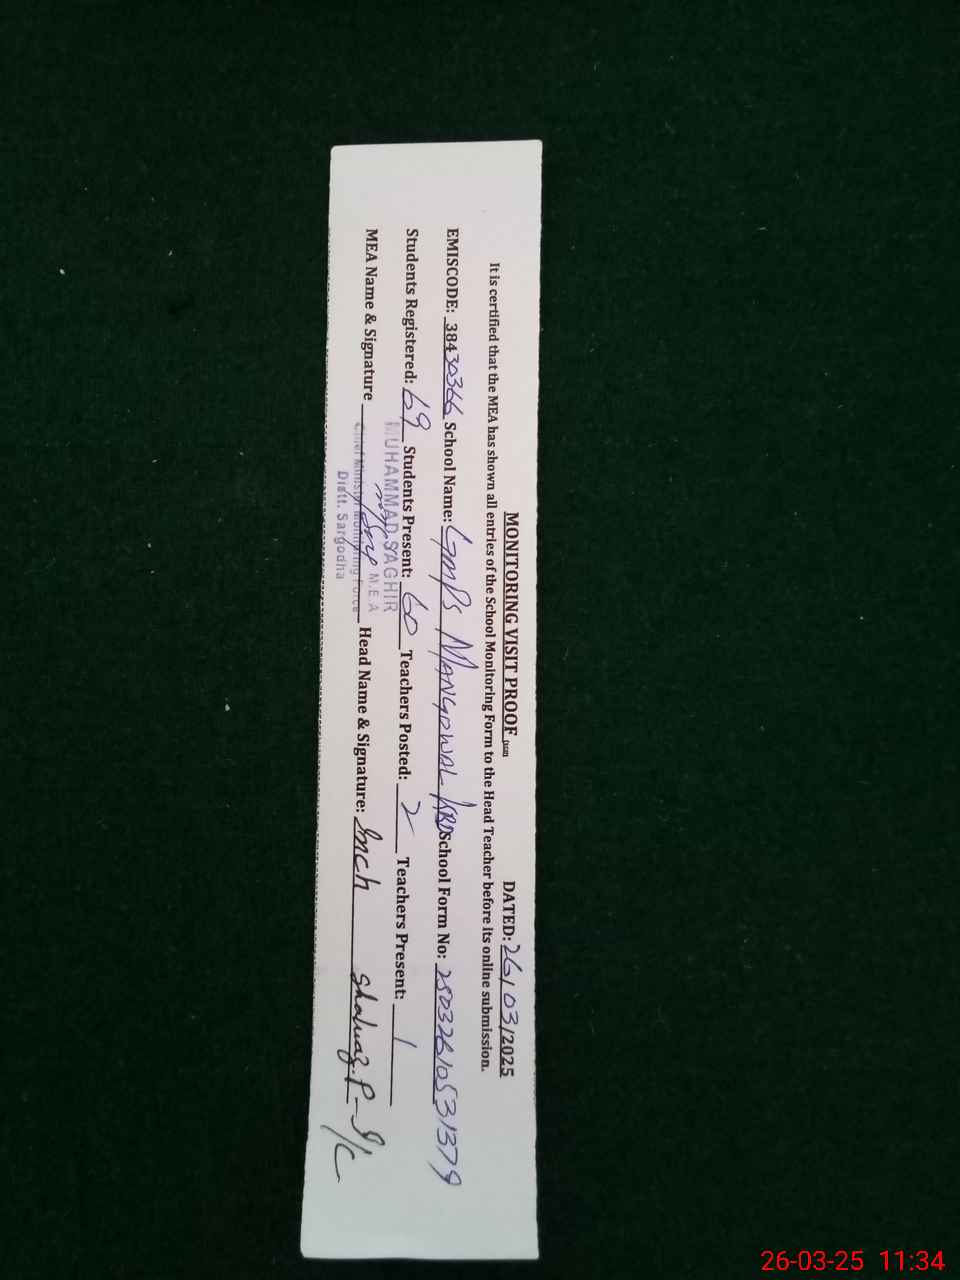 MONITORING VISIT PROOF DATED: 26/03/2025
It is certified that the MEA has shown all entries of the School Monitoring Form to the Head Teacher before its online submission.
EMISCODE: 38430366 School Name: GMPS MANGOWAL School Form No:
Students Registered: 69 Students Present: 60 Teachers Posted: 2 Teachers Present: 1
MUHAMMAD SAGHIR
M.E.A
MEA Name & Signature Head Name & Signature:
Chief Minister Monitoring Force
Distt. Sargodha
26-03-25 11:34